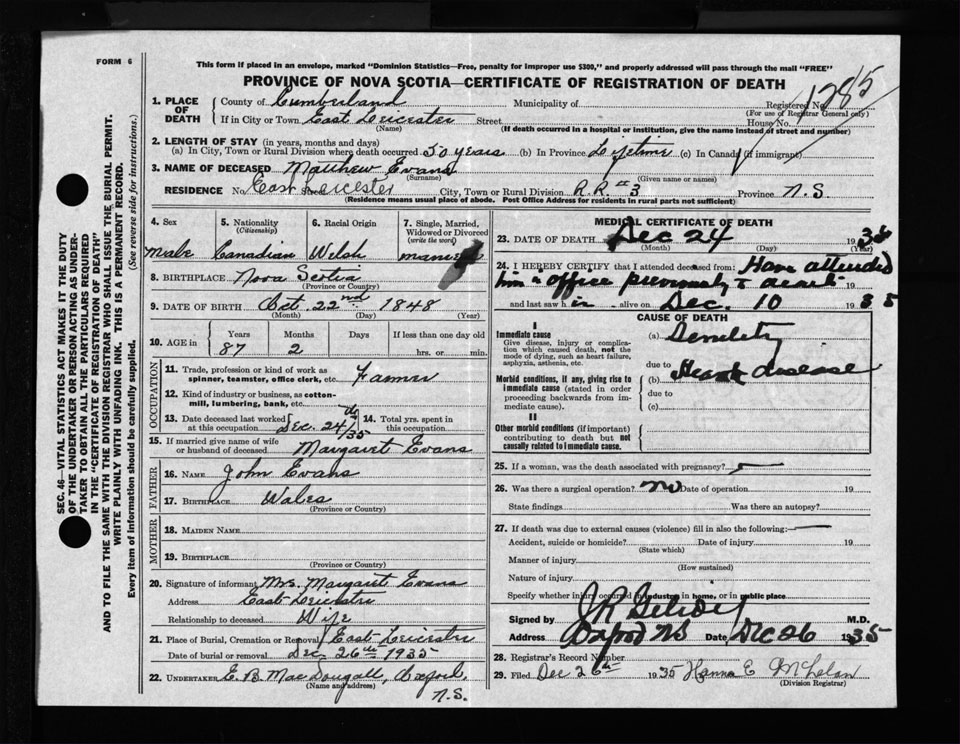 FORM 6
This form if placed in an envelope, marked "Dominion Statistics—Free, penalty for improper use $300," and properly addressed will pass through the mail "FREE"
PROVINCE OF NOVA SCOTIA—CERTIFICATE OF REGISTRATION OF DEATH
1785
1. PLACE OF DEATH
County of Cumberland Municipality of Registered No.
(For use of Registrar General only)
If in City or Town East Leicester Street House No.
(Name) (If death occurred in a hospital or institution, give the name instead of street and number)
2. LENGTH OF STAY (in years, months and days)
(a) In City, Town or Rural Division where death occurred 50 years (b) In Province Lifetime (c) In Canada (if immigrant)
3. NAME OF DECEASED Matthew Evans
(Surname) (Given name or names)
RESIDENCE No. East Leicester Street City, Town or Rural Division R.R. #3 Province N.S.
(Residence means usual place of abode. Post Office Address for residents in rural parts not sufficient)
4. Sex 5. Nationality 6. Racial Origin 7. Single, Married, Widowed or Divorced
(Citizenship) (write the word)
Male Canadian Welsh married
8. BIRTHPLACE Nova Scotia
(Province or Country)
9. DATE OF BIRTH Oct. 22nd 1848
(Month) (Day) (Year)
10. AGE in Years Months Days If less than one day old
87 2 hrs. or min.
OCCUPATION
11. Trade, profession or kind of work as spinner, teamster, office clerk, etc. Farmer
12. Kind of industry or business, as cotton-mill, lumbering, bank, etc.
13. Date deceased last worked at this occupation Dec. 24th/35 14. Total yrs. spent in this occupation
15. If married give name of wife or husband of deceased Margaret Evans
FATHER
16. NAME John Evans
17. BIRTHPLACE Wales
(Province or Country)
MOTHER
18. MAIDEN NAME
19. BIRTHPLACE
(Province or Country)
20. Signature of informant Mrs. Margaret Evans
Address East Leicester
Relationship to deceased Wife
21. Place of Burial, Cremation or Removal East Leicester
Date of burial or removal Dec. 26th 1935
22. UNDERTAKER E. B. MacDougall, Oxford, N.S.
(Name and address)
MEDICAL CERTIFICATE OF DEATH
23. DATE OF DEATH Dec 24 1935
(Month) (Day) (Year)
24. I HEREBY CERTIFY that I attended deceased from: Have attended
him in office previously to death
and last saw h im alive on Dec. 10 1935
CAUSE OF DEATH
I
Immediate cause
Give disease, injury or complication which caused death, not the mode of dying, such as heart failure, asphyxia, asthenia, etc.
(a) Senility
due to
Morbid conditions, if any, giving rise to immediate cause (stated in order proceeding backwards from immediate cause).
(b) Heart disease
due to
(c)
II
Other morbid conditions (if important) contributing to death but not causally related to immediate cause.
25. If a woman, was the death associated with pregnancy?
26. Was there a surgical operation? No Date of operation 19
State findings Was there an autopsy?
27. If death was due to external causes (violence) fill in also the following:
Accident, suicide or homicide? Date of injury 19
(State which)
Manner of injury
(How sustained)
Nature of injury
Specify whether injury occurred in industry, in home, or in public place
Signed by J R M.D.
Address Oxford NS Date Dec 26 1935
28. Registrar's Record Number
29. Filed Dec 26th 1935 Hanna E
(Division Registrar)
SEC. 46—VITAL STATISTICS ACT MAKES IT THE DUTY
OF THE UNDERTAKER OR PERSON ACTING AS UNDER-
TAKER TO OBTAIN ALL THE PARTICULARS REQUIRED
IN THE "CERTIFICATE OF REGISTRATION OF DEATH"
AND TO FILE THE SAME WITH THE DIVISION REGISTRAR WHO SHALL ISSUE THE BURIAL PERMIT.
WRITE PLAINLY WITH UNFADING INK. THIS IS A PERMANENT RECORD.
Every item of information should be carefully supplied. (See reverse side for instructions.)